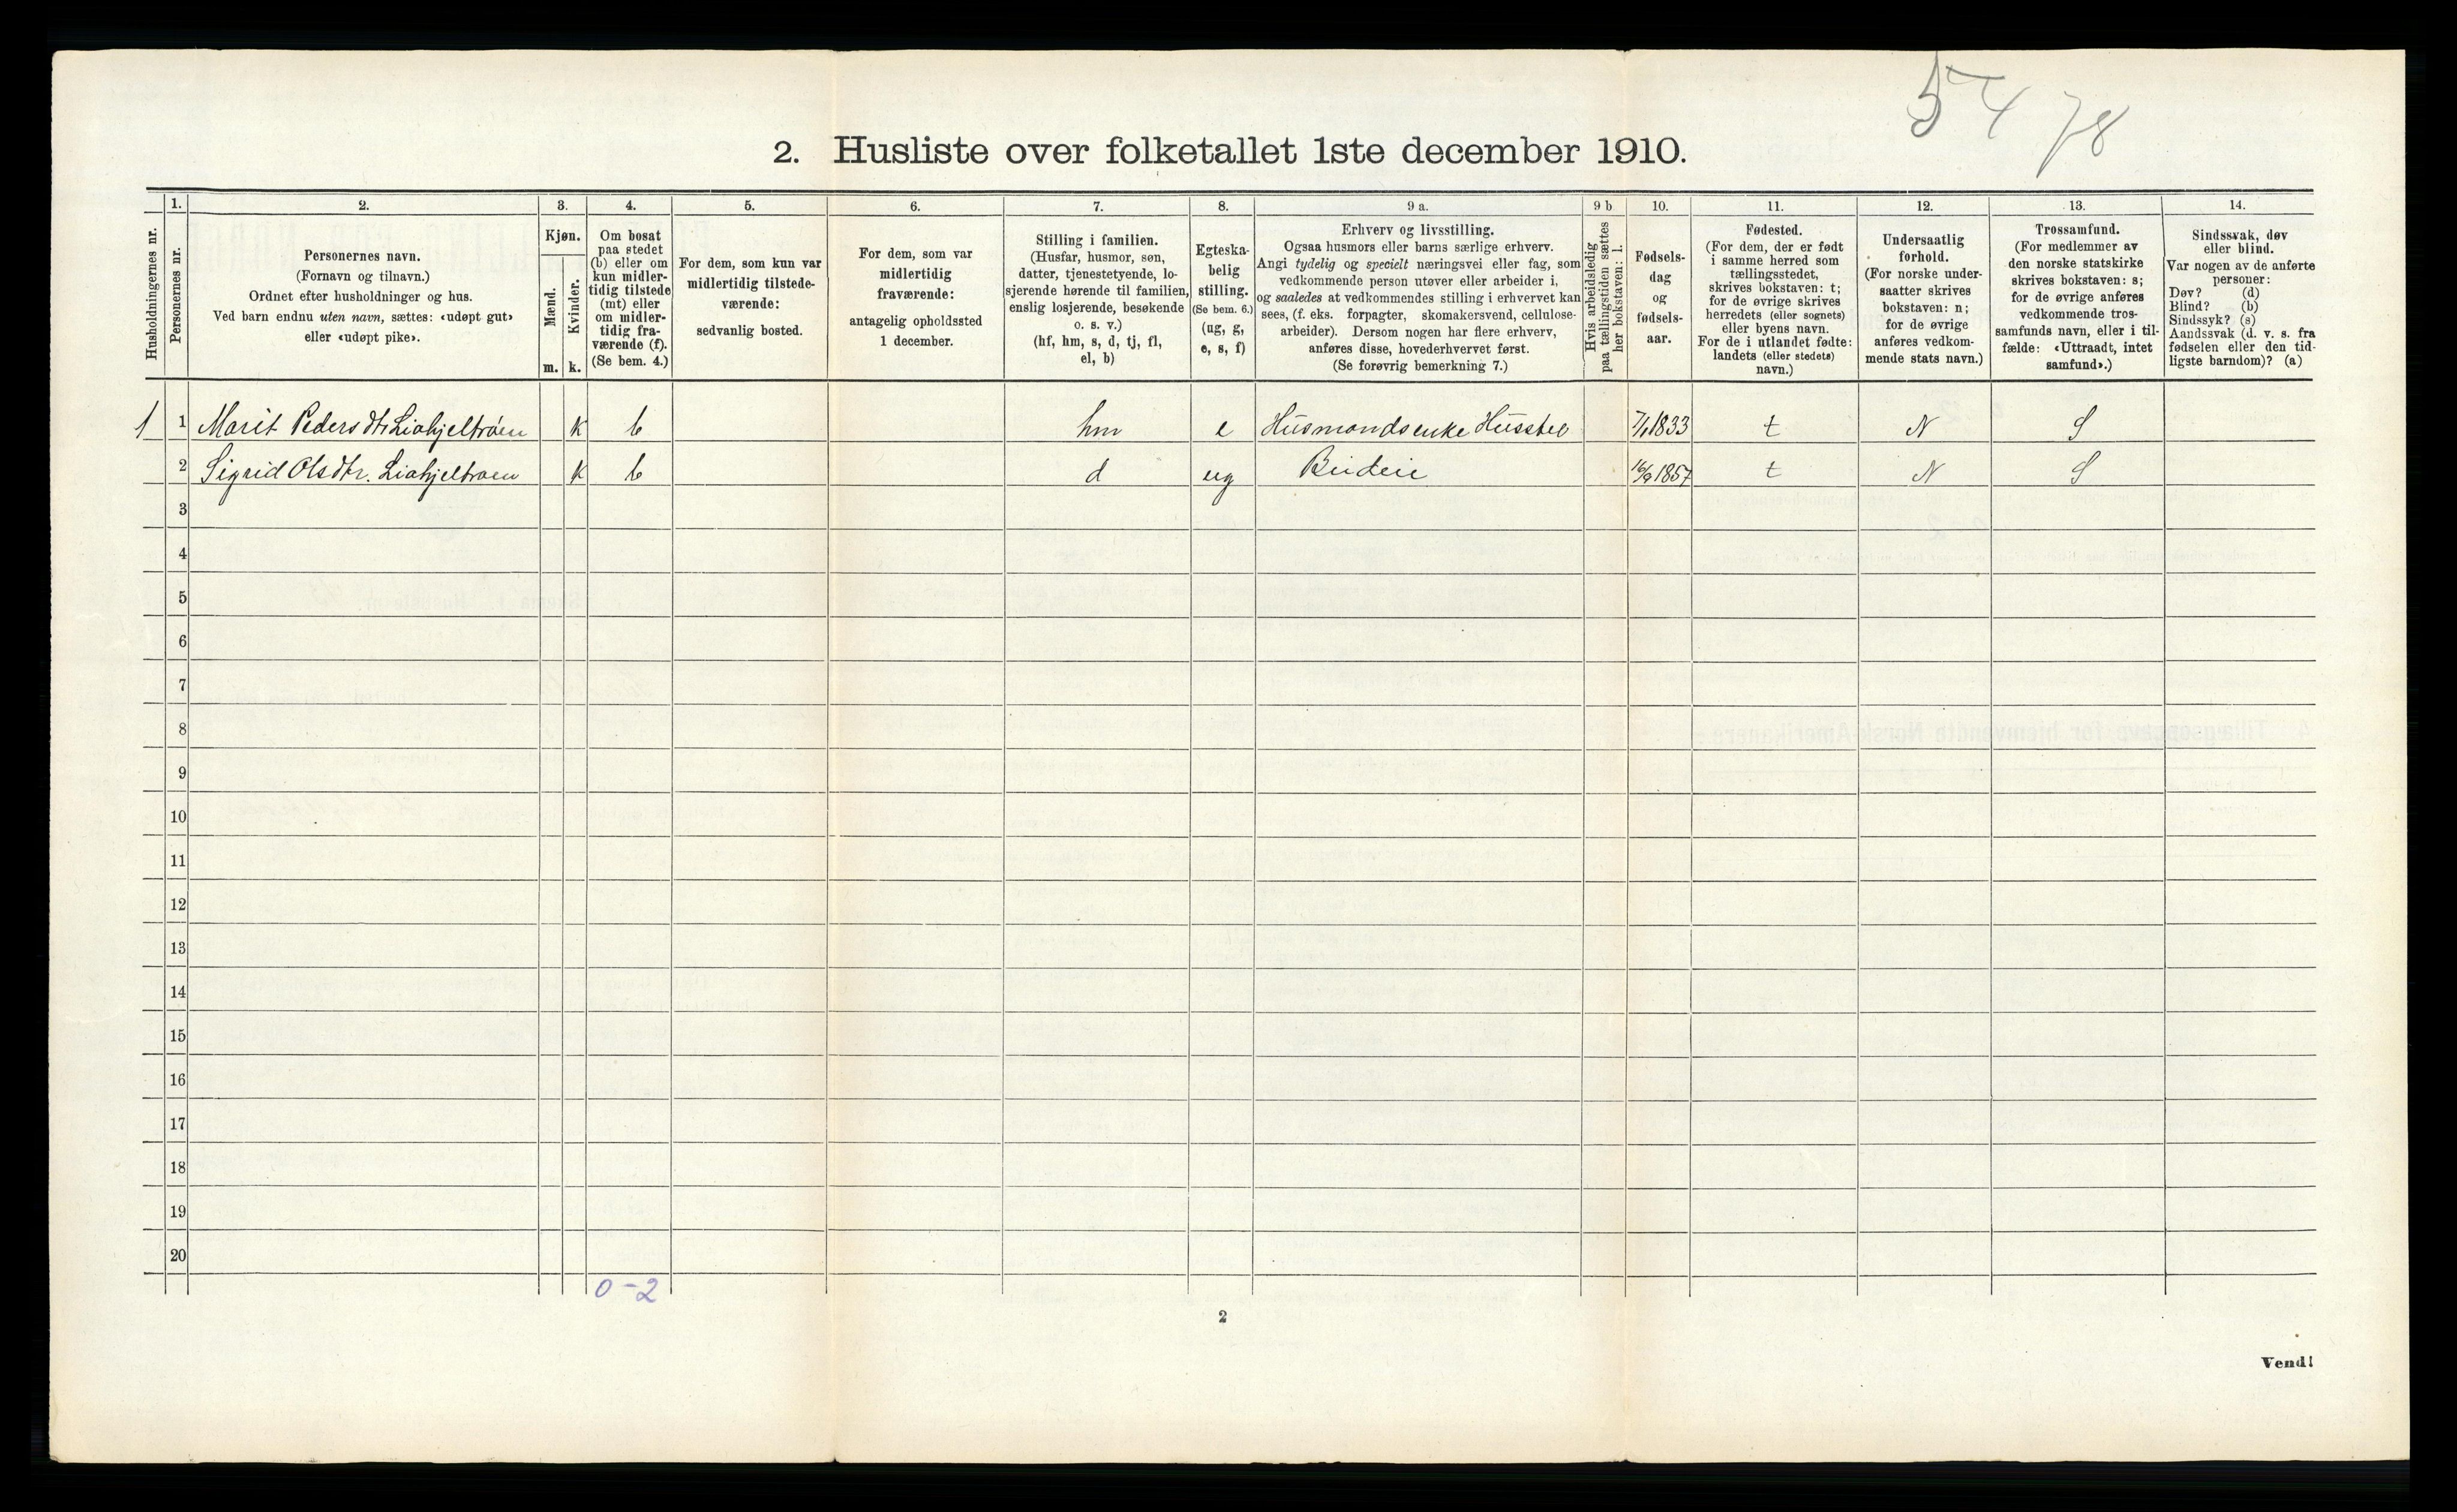 54 78
2. Husliste over folketallet 1ste december 1910.
Husholdningernes nr.
1.
Personernes nr.
2.
Personernes navn.
(Fornavn og tilnavn.)
Ordnet efter husholdninger og hus.
Ved barn endnu uten navn, sættes: «udøpt gut»
eller «udøpt pike».
3.
Kjøn.
Mænd.
Kvinder.
m. k.
4.
Om bosat
paa stedet
(b) eller om
kun midler-
tidig tilstede
(mt) eller
om midler-
tidig fra-
værende (f).
(Se bem. 4.)
5.
For dem, som kun var
midlertidig tilstede-
værende:
sedvanlig bosted.
6.
For dem, som var
midlertidig
fraværende:
antagelig opholdssted
1 december.
7.
Stilling i familien.
(Husfar, husmor, søn,
datter, tjenestetyende, lo-
sjerende hørende til familien,
enslig losjerende, besøkende
o. s. v.)
(hf, hm, s, d, tj, fl,
el, b)
8.
Egteska-
belig
stilling.
(Se bem. 6.)
(ug, g,
e, s, f)
9 a.
Erhverv og livsstilling.
Ogsaa husmors eller barns særlige erhverv.
Angi tydelig og specielt næringsvei eller fag, som
vedkommende person utøver eller arbeider i,
og saaledes at vedkommendes stilling i erhvervet kan
sees, (f. eks. forpagter, skomakersvend, cellulose-
arbeider). Dersom nogen har flere erhverv,
anføres disse, hovederhvervet først.
(Se forøvrig bemerkning 7.)
9 b
Hvis arbeidsledig
paa tællingstiden sættes
her bokstaven: l.
10.
Fødsels-
dag
og
fødsels-
aar.
11.
Fødested.
(For dem, der er født
i samme herred som
tællingsstedet,
skrives bokstaven: t;
for de øvrige skrives
herredets (eller sognets)
eller byens navn.
For de i utlandet fødte:
landets (eller stedets)
navn.)
12.
Undersaatlig
forhold.
(For norske under-
saatter skrives
bokstaven: n;
for de øvrige
anføres vedkom-
mende stats navn.)
13.
Trossamfund.
(For medlemmer av
den norske statskirke
skrives bokstaven: s;
for de øvrige anføres
vedkommende tros-
samfunds navn, eller i til-
fælde: «Uttraadt, intet
samfund».)
14.
Sindssvak, døv
eller blind.
Var nogen av de anførte
personer:
Døv? (d)
Blind? (b)
Sindssyk? (s)
Aandssvak (d. v. s. fra
fødselen eller den tid-
ligste barndom)? (a)
1 1 Marit Pedersdtr Liahjeltrøen K b hm e Husmandsenke Husstel 7/1 1833 t N S
2 Sigrid Olsdtr. Liahjeltrøen K b d ug Budeie 16/9 1857 t N S
3
4
5
6
7
8
9
10
11
12
13
14
15
16
17
18
19
20
0-2
2
Vend!